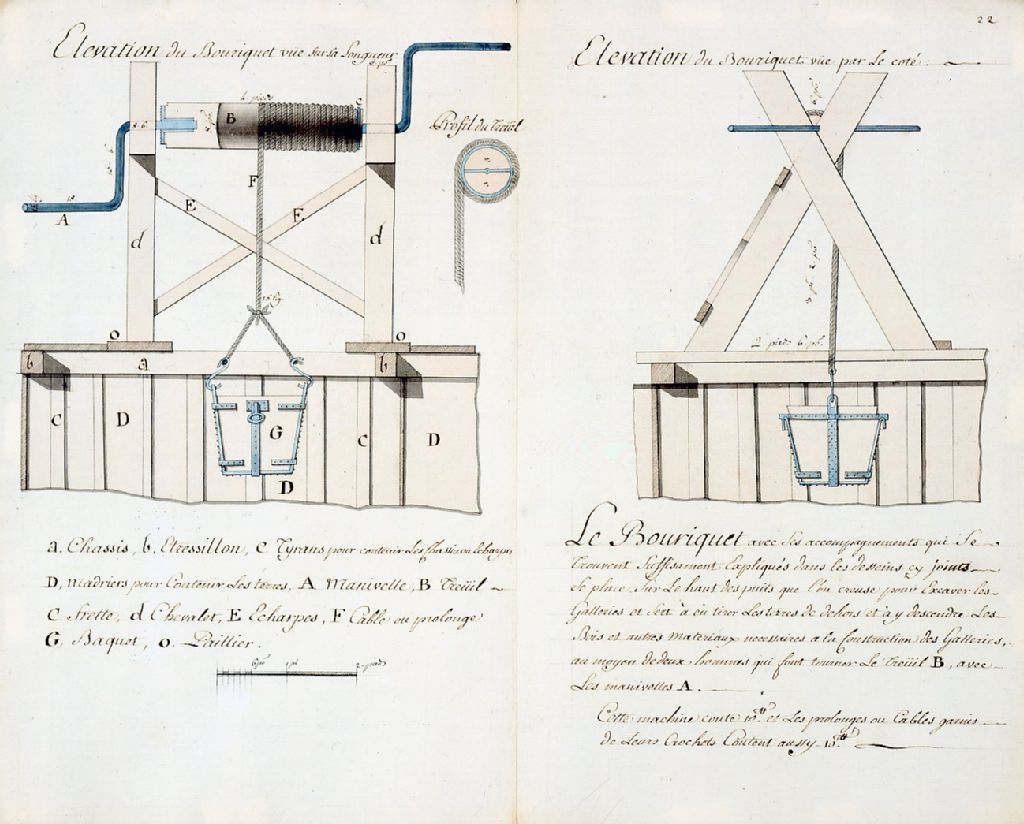 22
Elevation du Bouriquet vüe sur sa Longueur
Elevation du Bouriquet vüe par Le coté.
Profil du Treüil
4 pieds
B
C
A
F
E
E
d
d
o
o
b
a
b
c
D
G
c
D
D
2 pieds 6 po.
a. Chassis, b. Etressillon, c Tyrans pour contenir Les chassis ou Echarpes
D, Madriers pour Contenir Les terres, A Manivelle, B Treüil
C frette, d Chevalet, E Echarpes, F Cable ou prolonge
G. Baquet, o. Paillier.
6po 1pi 2 pieds
Le Bouriquet avec ses accompagnements qui se
trouvent suffisament Expliqués dans les desseins cy joints
se place sur Le haut des puits que l'on creuse pour Excaver les
Galleries et sert a en tirer Les terres de dehors et a y descendre Les
Bois et autres materiaux necessaires a la Construction des Galleries,
au moyen de deux hommes qui font tourner Le Treüil B, avec
Les manivelles A.
Cette machine coute 10tt et Les prolonges ou Cables garnis
de Leurs Crochets Coutent aussy 10tt